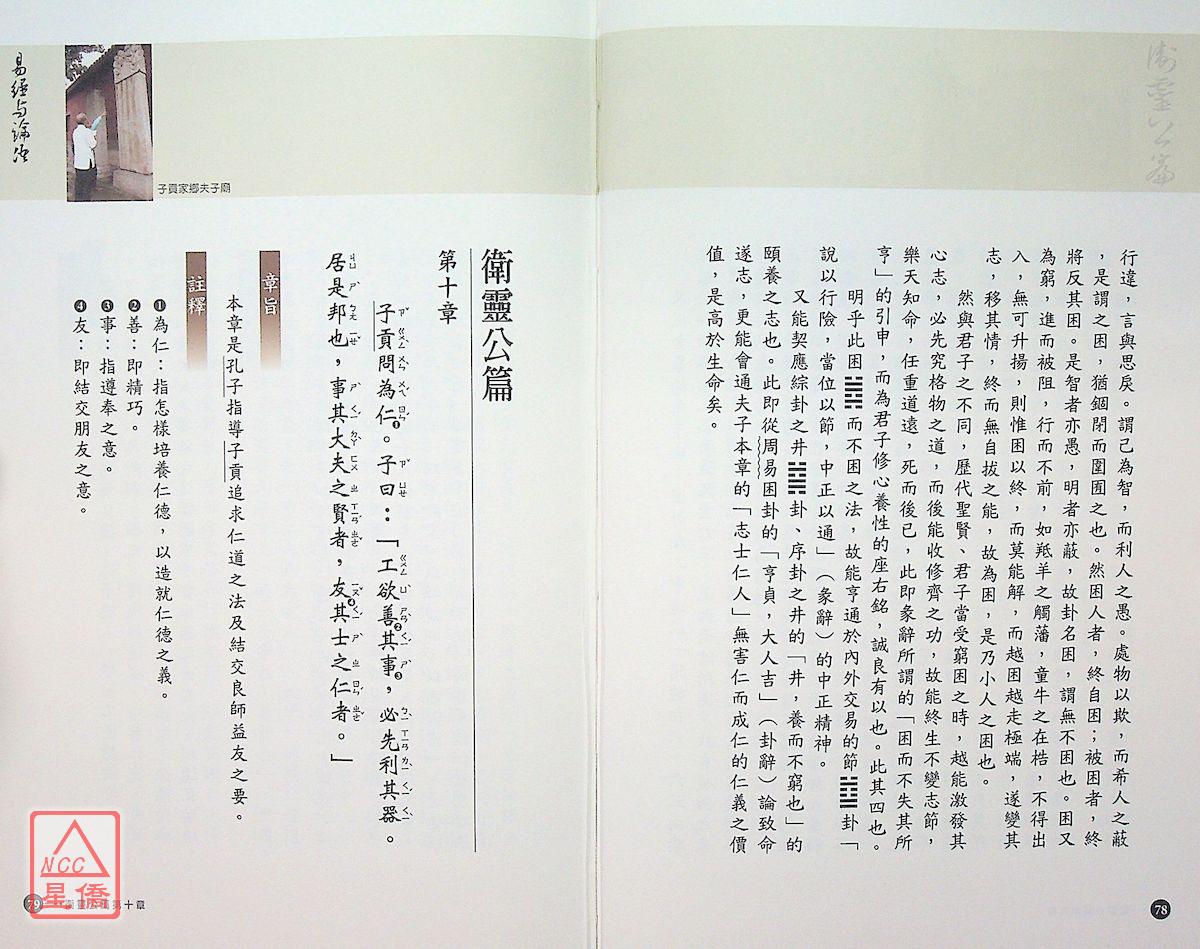 衛靈公篇
行違，言與思戾。謂己為智，而利人之愚。處物以欺，而希人之蔽
，是謂之困，猶錮閉而圍囹之也。然困人者，終自困；被困者，終
將反其困。是智者亦愚，明者亦蔽，故卦名困，謂無不困也。困又
為窮，進而被阻，行而不前，如羝羊之觸藩，童牛之在梏，不得出
入，無可升揚，則惟困以終，而莫能解，而越困越走極端，遂變其
志，移其情，終而無自拔之能，故為困，是乃小人之困也。
然與君子之不同，歷代聖賢、君子當受窮困之時，越能激發其
心志，必先究格物之道，而後能收修齊之功，故能終生不變志節，
樂天知命，任重道遠，死而後已，此即彖辭所謂的「困而不失其所
亨」的引申，而為君子修心養性的座右銘，誠良有以也。此其四也。
明乎此困䷮而不困之法，故能亨通於內外交易的節䷻卦「
說以行險，當位以節，中正以通」（彖辭）的中正精神。
又能契應綜卦之井䷯卦、序卦之井的「井，養而不窮也」的
頤養之志也。此即從周易困卦的「亨貞，大人吉」（卦辭）論致命
遂志，更能會通夫子本章的「志士仁人」無害仁而成仁的仁義之價
值，是高於生命矣。
78
易經與論語
子貢家鄉夫子廟
衛靈公篇
第十章
子貢問為仁❶。子曰：「工欲善❷其事❸，必先利其器。
居是邦也，事其大夫之賢者，友❹其士之仁者。」
章旨
本章是孔子指導子貢追求仁道之法及結交良師益友之要。
註釋
❶為仁：指怎樣培養仁德，以造就仁德之義。
❷善：即精巧。
❸事：指遵奉之意。
❹友：即結交朋友之意。
79 衛靈公篇第十章
NCC
星僑